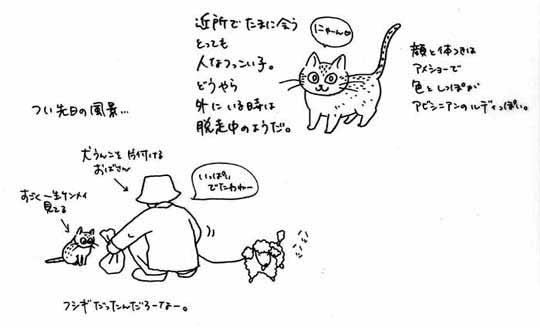 近所でたまに会う
とっても
人なつっこい子。
どうやら
外にいる時は
脱走中のようだ。
にゃーん
顔と体つきは
アメショーで
色としっぽが
アビシニアンのルディっぽい。
つい先日の風景…
犬うんこを片付ける
おばさん
いっぱい
でたわねー
すごく一生ケンメイ
見てる
フシギだったんだろーなー。